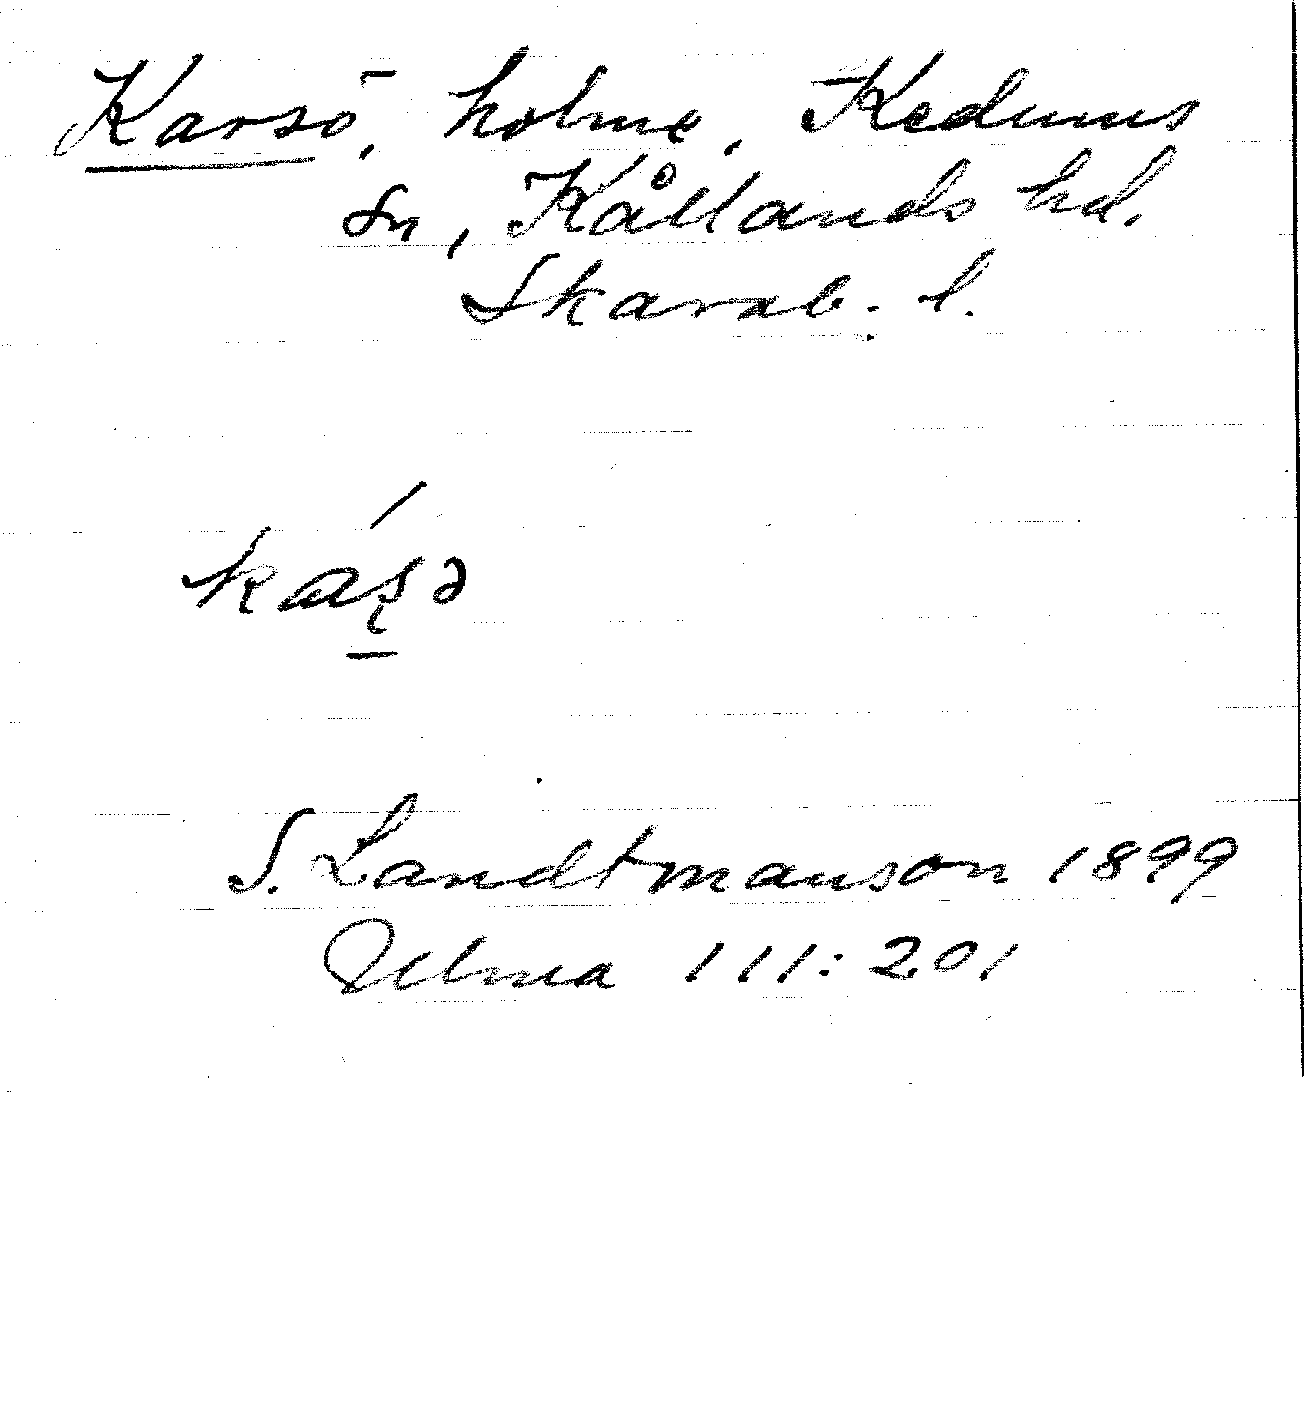 Karsö, holme, Kedums
sn, Kållands hd.
Skarab. l.
S. Landtmanson 1899
Ulma 111:201